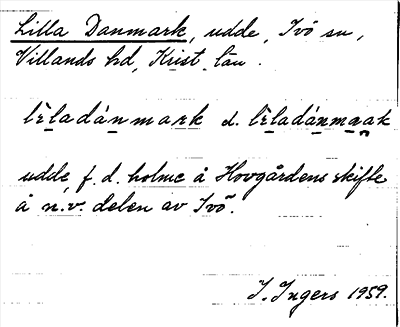 Lilla Danmark, udde, Ivö sn,
Villands hd, Krist. län.
lìladánmark d. lìladánmaak
udde, f.d. holme å Hovgårdens skifte
å n.v. delen av Ivö.
I. Ingers 1959.